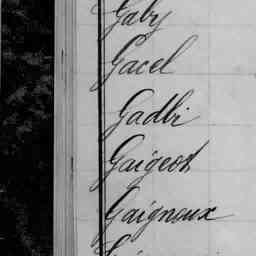 Gaby
Gacel
Gadbi
Gaigeot
Gaigneux